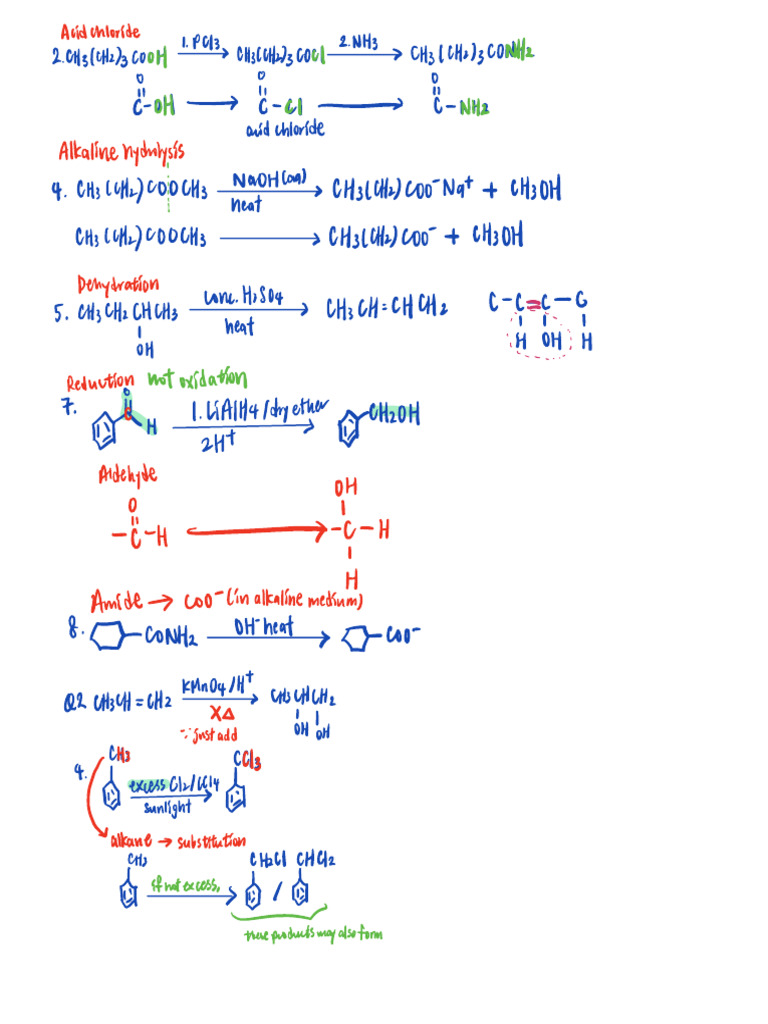 Acid chloride
2. CH3(CH2)3COOH 1. PCl3 CH3(CH2)3COCl 2. NH3 CH3(CH2)3CONH2
O O O
C-OH C-Cl C-NH2
acid chloride
Alkaline hydrolysis
4. CH3(CH2)COOCH3 NaOH(aq) heat CH3(CH2)COO-Na+ + CH3OH
CH3(CH2)COOCH3 CH3(CH2)COO- + CH3OH
Dehydration
5. CH3CH2CHCH3 conc. H2SO4 heat CH3CH=CHCH2 C-C=C-C
OH H OH H
Reduction not oxidation
7. O H 1. LiAlH4/dry ether 2H+ CH2OH
Aldehyde
O OH
-C-H -C-H
H
Amide → COO- (in alkaline medium)
8. CONH2 OH- heat COO-
Q2 CH3CH=CH2 KMnO4/H+ CH3CHCH2
X△ OH OH
∵just add
9. CH3 excess Cl2/CCl4 CCl3
sunlight
alkane → substitution
CH3 if not excess, CH2Cl / CHCl2
these products may also form